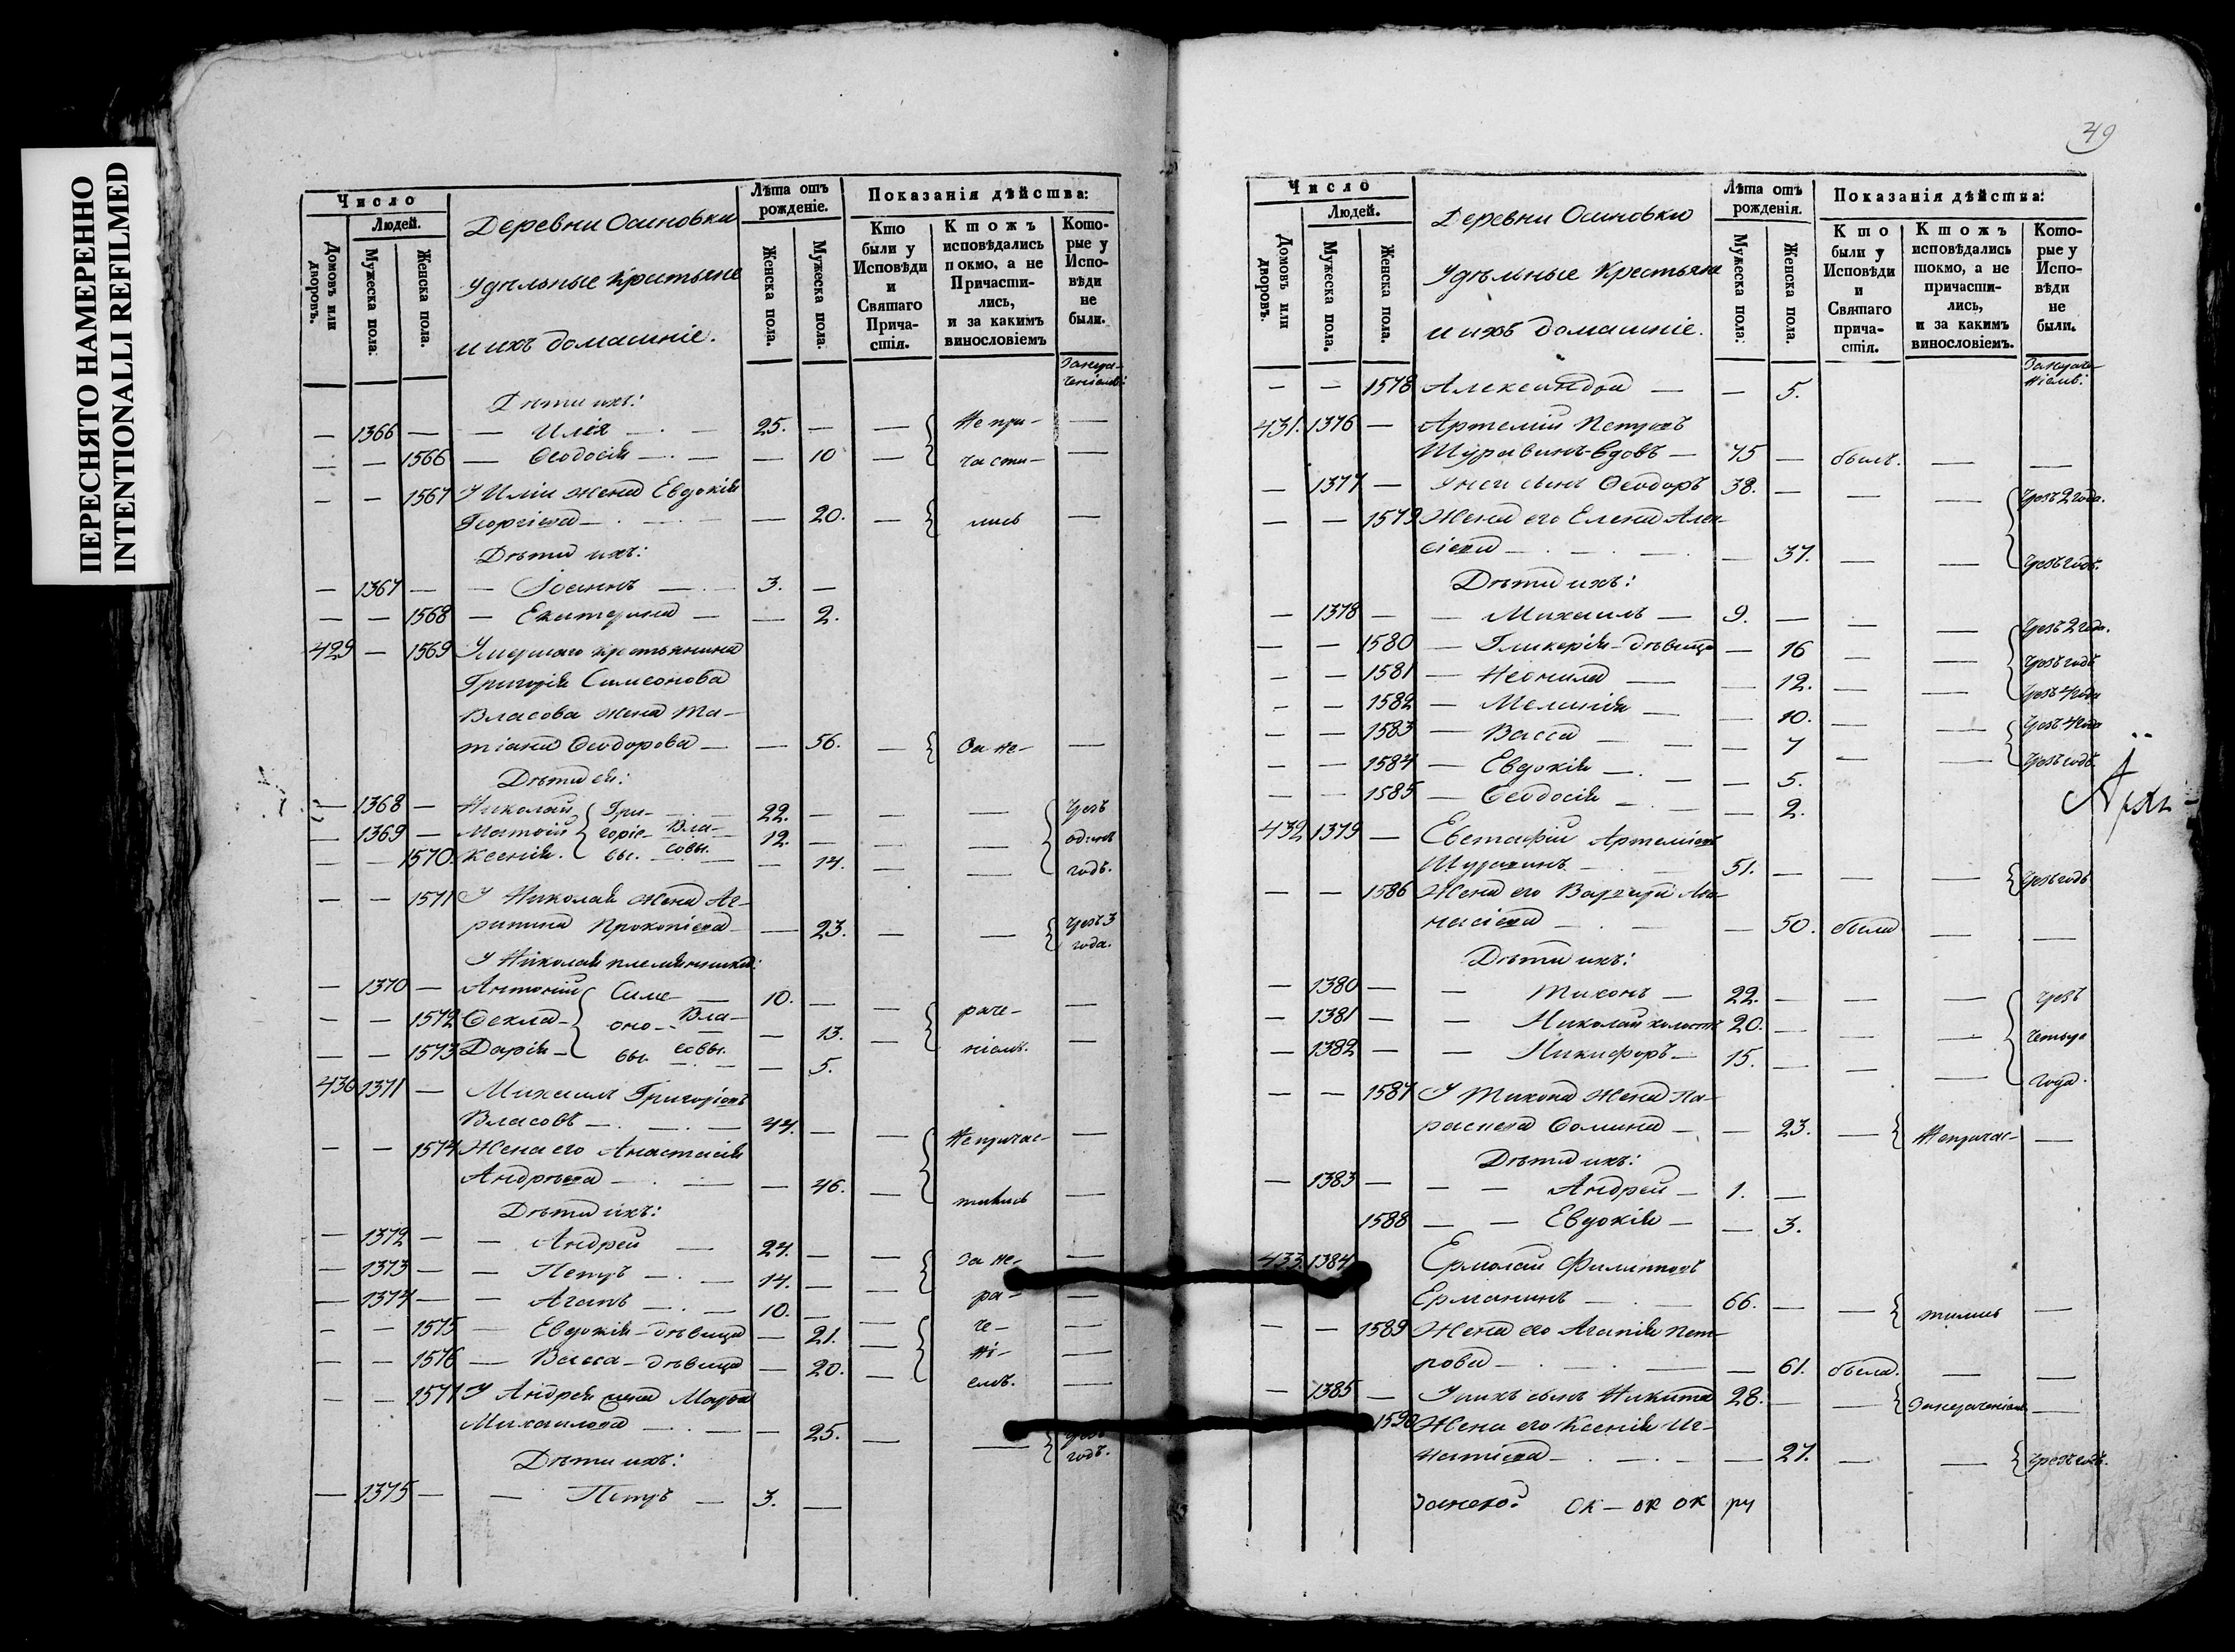 ПЕРЕСНЯТО НАМЕРЕННО
INTENTIONALLI REFILMED
Число
Людей.
Домовъ или дворовъ.
Мужеска пола.
Женска пола.
Деревни Осиновки
Удѣльные крестьяне
и ихъ домашніе.
Лѣта отъ рожденіе.
Женска пола.
Мужеска пола.
Показанія дѣйства:
Кто были у Исповѣди и Святаго Прича-стія.
Ктожъ исповѣдались покмо, а не Причасти-лись, и за какимъ винословіемъ
Кото-рые у Испо-вѣди не были.
Дѣти ихъ:
— 1366 — — Илія — 25. — — Не при- —
— — 1566 — Ѳеодосія — — 10 — части- —
— — 1567 У Иліи жена Евдокія
Георгіева — — 20. — лись —
Дѣти ихъ:
— 1367 — — Іоаннъ — 3. —
— — 1568 — Екатерина — — 2.
429 — 1569 Умершаго крестьянина
Григорія Симеонова
Власова жена Та-
тіана Ѳеодорова — — 56. — За не- —
Дѣти ея:
— 1368 — Николай Гри- 22. — — — Чрезъ
— 1369 — Матѳій горіе- Вла- 12. — — — одинъ
— — 1570. Ксенія. вы. совы. — 14. — — годъ.
— — 1571 У Николая жена Аг-
рипина Прокопіева — — 23. — — Чрезъ 3 года.
У Николая племянники:
— 1370 — Антоній Симе- 10. —
— — 1572 Ѳекла — оно- Вла- — 13. — раче- —
— — 1573 Дарія — вы. совы. — 5. ніемъ. —
430 1371 — Михаилъ Григоріевъ
Власовъ — 44. — — Непричас- —
— — 1574 Жена его Анастасія
Андрѣева — — 46. — тились —
Дѣти ихъ:
— 1372 — — Андрей — 24. — — За не- —
— 1373 — — Петръ — 14. — — ра- —
— 1374 — — Агапъ — 10. — — че- —
— — 1575 — Евдокія — дѣвица — 21. — ні- —
— — 1576 — Васса — дѣвица — 20. — емъ. —
— — 1577 У Андрея жена Марѳа
Михайлова — — 25. — — Чрезъ годъ.
Дѣти ихъ:
— 1375 — — Петръ — 3. —
49
Число
Людей.
Домовъ или дворовъ.
Мужеска пола.
Женска пола.
Деревни Осиновки
Удѣльные Крестьяне
и ихъ домашніе.
Лѣта отъ рожденія.
Мужеска пола:
Женска пола.
Показанія дѣйства:
Кто были у Исповѣди и Святаго прича-стія.
Ктожъ исповѣдались шокмо, а не причасти-лись, и за какимъ винословіемъ.
Кото-рые у Испо-вѣди не были.
— — 1578 Александра — — 5.
431. 1376 — Артемій Петровъ
Шуравинъ-вдовъ — 75 — былъ. — —
— 1377 — У него сынъ Ѳеодоръ 38. — — — Чрезъ 2 года.
— — 1579 Жена его Елена Алек-
сіева — — 37. — — Чрезъ годъ.
Дѣти ихъ:
— 1378 — — Михаилъ — 9. — — — Чрезъ 2 года.
— — 1580 — Гликерія — дѣвица — 16 — — Чрезъ годъ
— — 1581 — Неонила — — 12. — — Чрезъ 4 года
— — 1582 — Меланія — — 10. — — Чрезъ 4 года
— — 1583 — Васса — — 7 — — Чрезъ годъ.
— — 1584 — Евдокія — — 5.
— — 1585 — Ѳеодосія — — 2.
432 1379 — Евстафій Артеміевъ
Шуравинъ — 51. — — — Чрезъ годъ
— — 1586 Жена его Варвара Аѳа-
насіева — — 50. была — —
Дѣти ихъ:
— 1380 — — Тихонъ — 22. — — — Чрезъ
— 1381 — — Николай холостъ 20. — — — четыре
— 1382 — — Никифоръ — 15. — — — года.
— — 1587 У Тихона жена Па-
раскева Ѳомина — — 23. — Непричас- —
Дѣти ихъ:
— 1383 — — Андрей — 1. —
1588 — — Евдокія — — 3.
433. 1384 Ермолай Филиповъ
Ерманинъ — 66. — — тились —
— — 1589 Жена его Агапія Пет-
рова — — 61. была. — —
— 1385 — У нихъ сынъ Никита 28. — — Занерачениемъ —
1590 Жена его Ксенія Иг-
натіева — — 27. — — Чрезъ годъ.